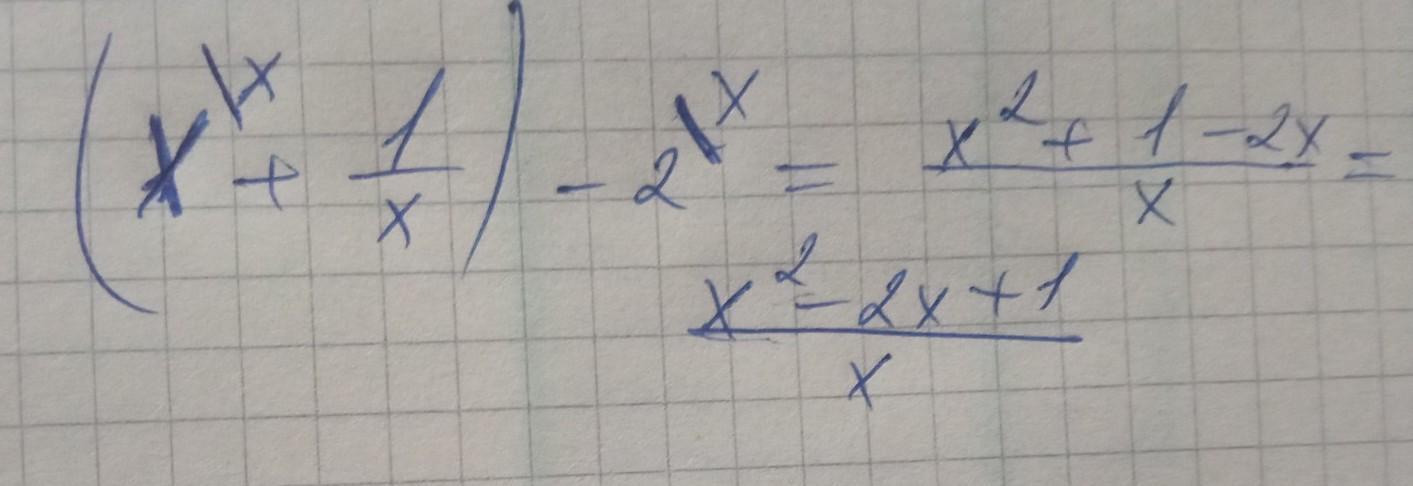 (x\x + 1/x) - 2\x = (x² + 1 - 2x)/x =
(x² - 2x + 1)/x